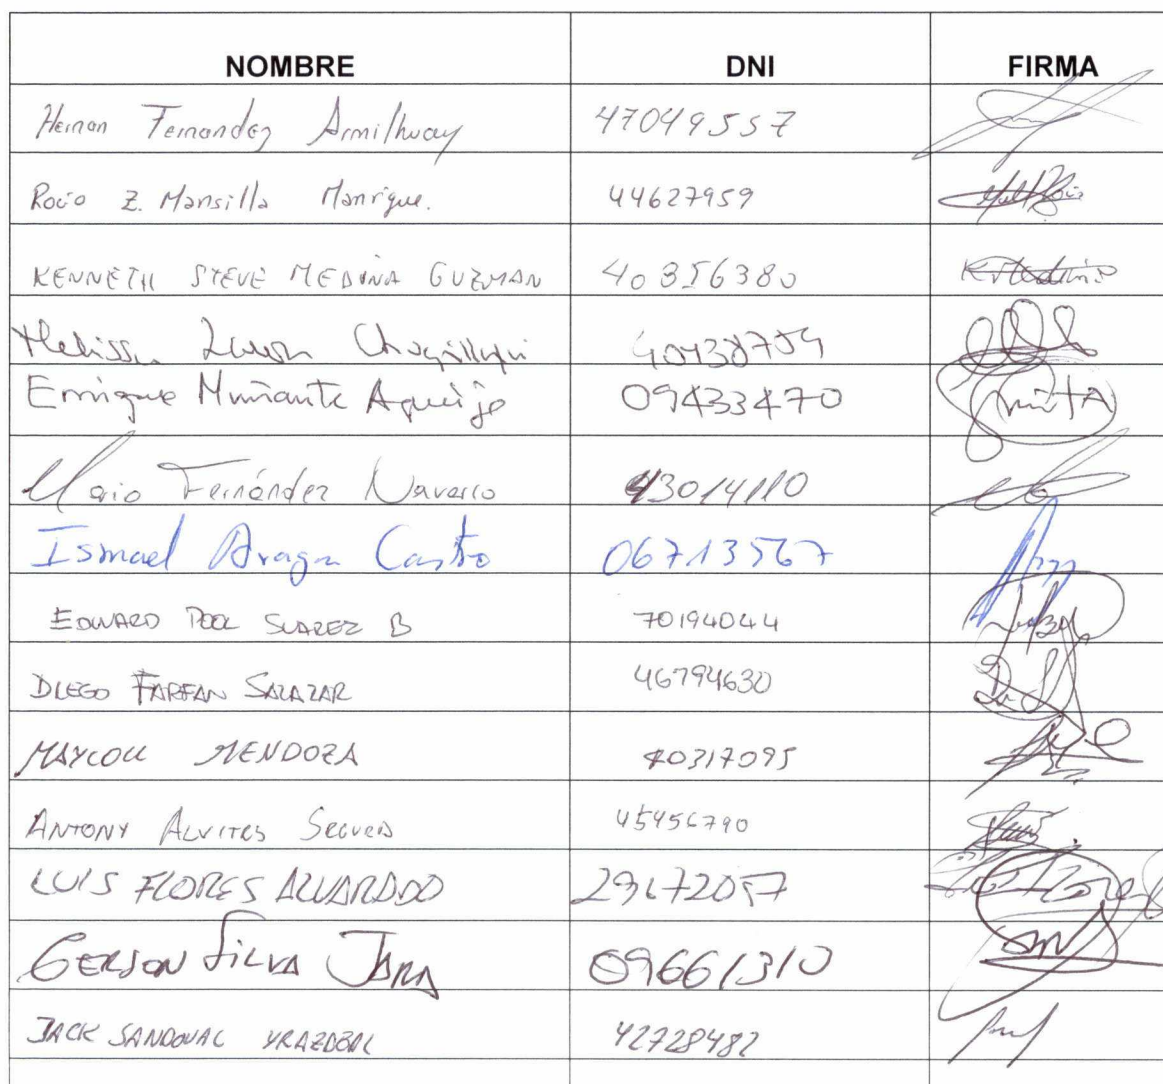 NOMBRE DNI FIRMA
Hernan Fernandez Armilhuay 47049557
Rocio Z. Mansilla Manrique. 44627959
KENNETH STEVE MEDINA GUZMAN 40356380
Melissa
Enrique Muñante Aquije 09433470
Mario Fernández Navarro 43014110
Ismael Aragon Castro 06713567
EDWARD POOL SUAREZ B 70194044
DIEGO FARFAN SALAZAR 46794630
MAYCOLL MENDOZA 40317095
ANTONY ALVITES 45456790
LUIS FLORES ALVARADO 29672057
GERSON SILVA JARA 09661310
JACK SANDOVAL YRAZABAL 42728482